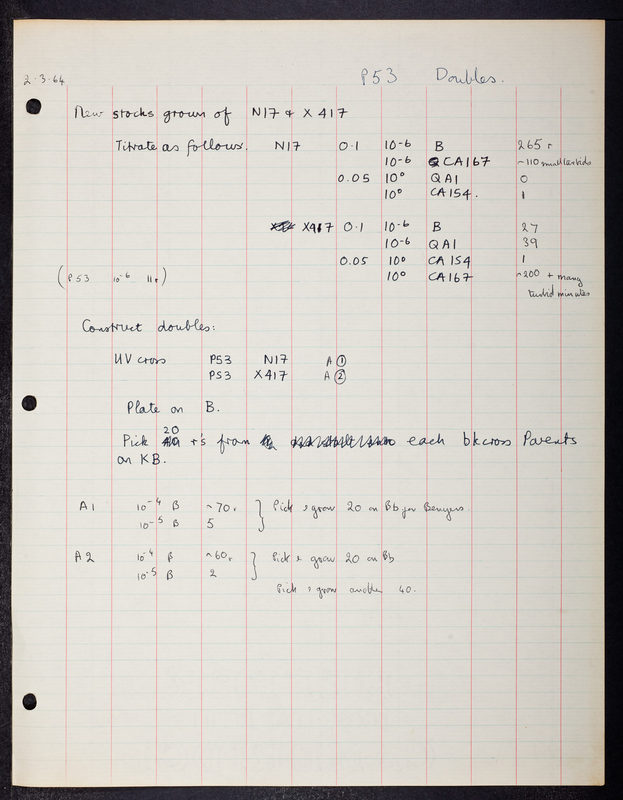 2·3·64
P53 Doubles.
New stocks grown of N17 & X417
Titrate as follows. N17 0.1 10⁻⁶ B 265 r
10⁻⁶ CA167 ~110 small turbids
0.05 10⁰ QA1 0
10⁰ CA154. 1
X417 0.1 10⁻⁶ B 27
10⁻⁶ QA1 39
0.05 10⁰ CA154 1
(P53 10⁻⁶ 11r) 10⁰ CA167 ~200 + many
turbid minutes
Construct doubles:
UV cross P53 N17 A ①
P53 X417 A ②
Plate on B.
20
Pick r's from each bkcross Parents
on KB.
A1 10⁻⁴ B ~70r } Pick & grow 20 on Bb for Benzers.
10⁻⁵ B 5
A2 10⁻⁴ B ~60r } Pick & grow 20 on Bb
10⁻⁵ B 2
Pick & grow another 40.